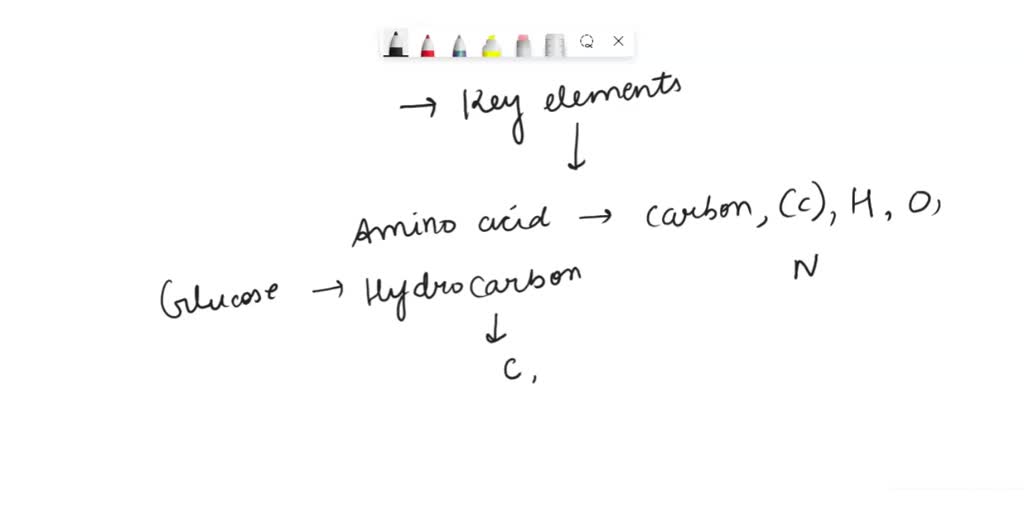 → Key elements
↓
Amino acid → carbon, (c), H, O,
N
Glucose → Hydrocarbon
↓
C,